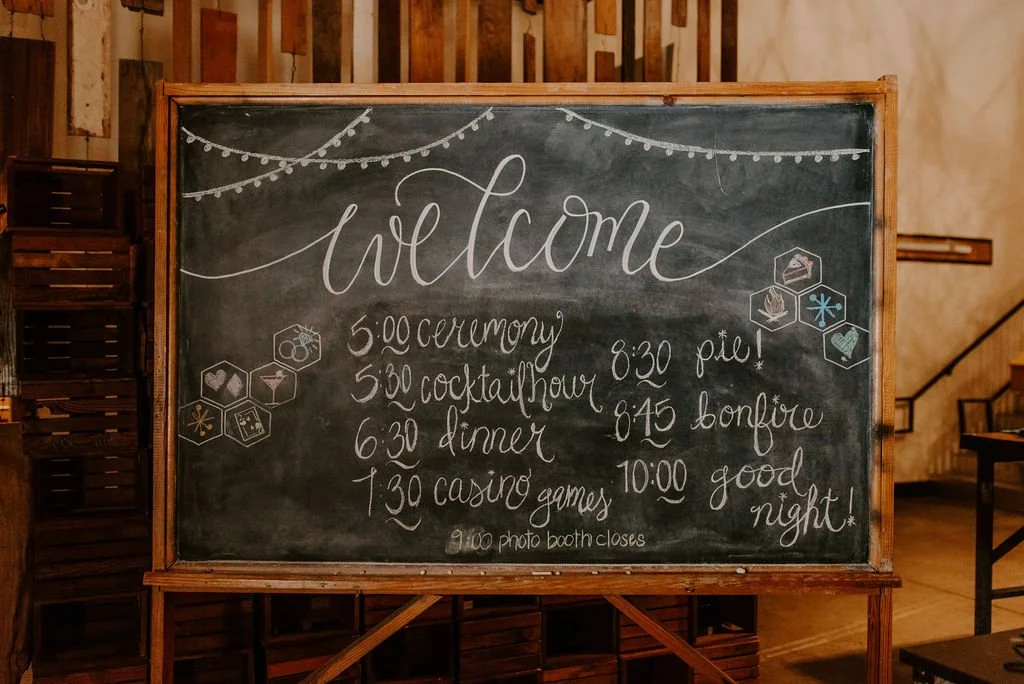 welcome
5:00 ceremony
5:30 cocktail hour
6:30 dinner
7:30 casino games
8:30 pie!
8:45 bonfire
10:00 good
night!
9:00 photo booth closes